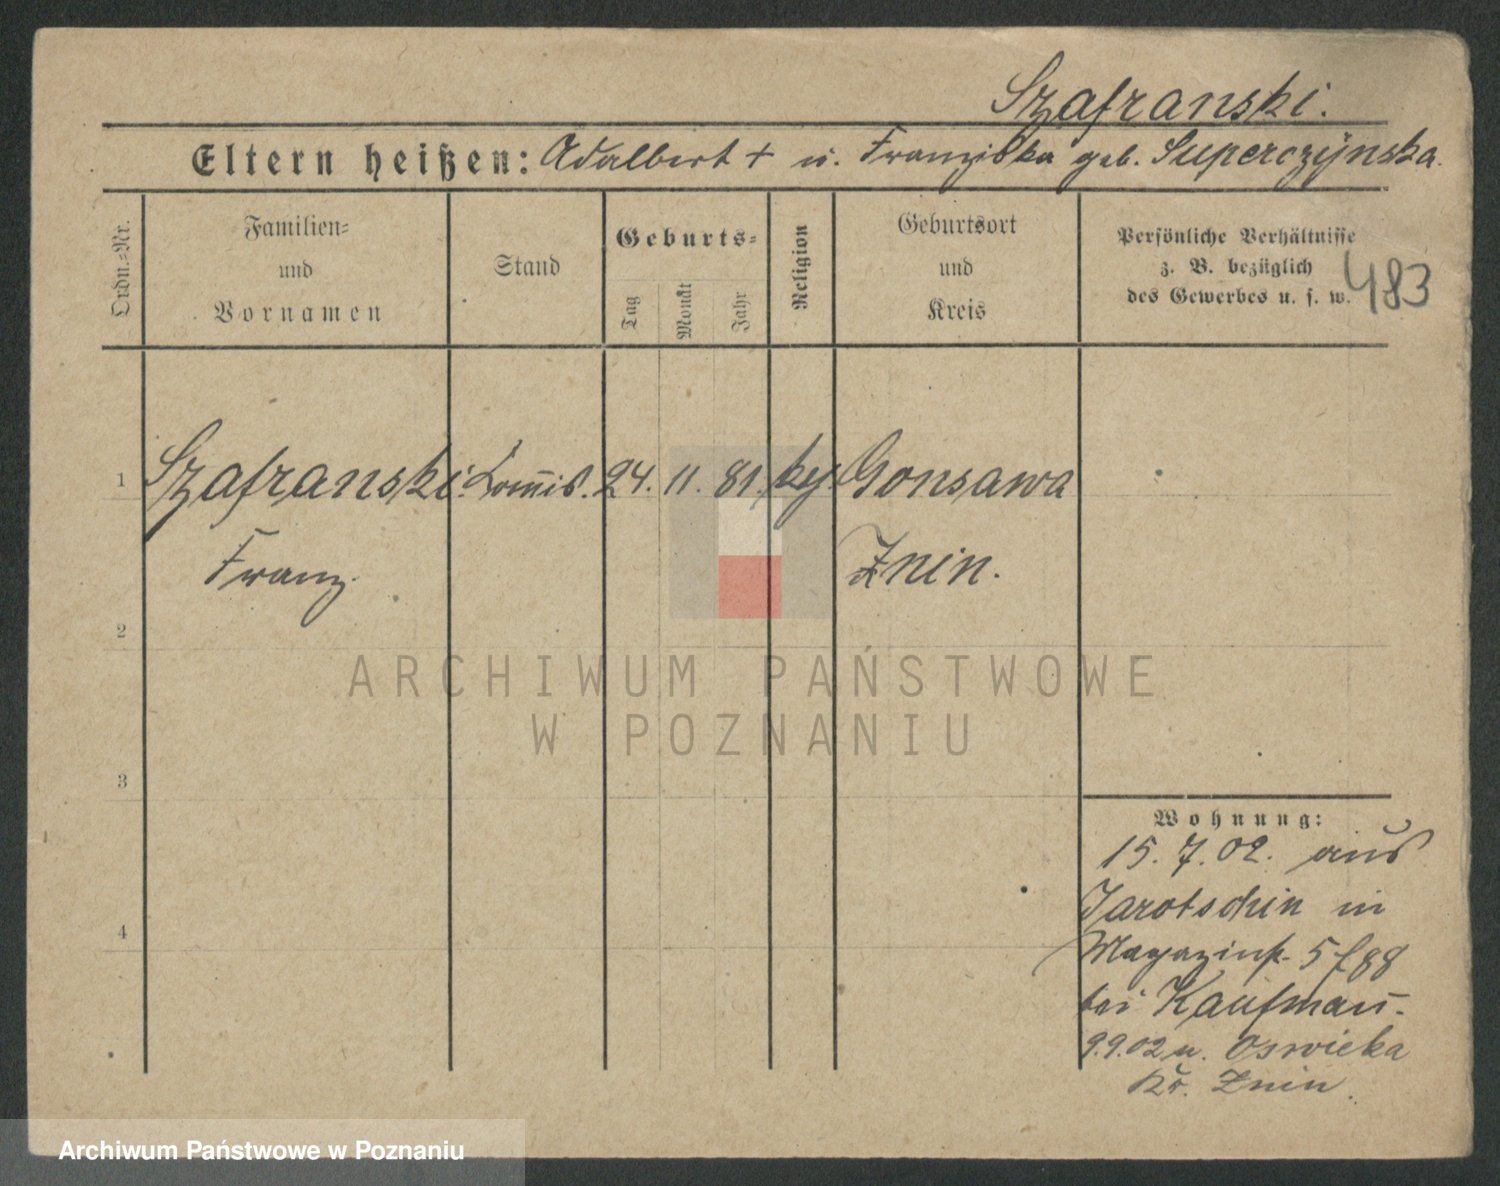 Szafranski.
Eltern heißen: Adalbert + u. Franziska geb. Superczÿnska.
Ordn.=Nr.
Familien=
und
Vornamen
Stand
Geburts=
Tag
Monat
Jahr
Religion
Geburtsort
und
Kreis
Persönliche Verhältnisse
z. B. bezüglich
des Gewerbes u. s. w.
483
1 Szafranski Commis. 24. 11. 81. Gonsawa
Franz. Znin.
2
3
4
ARCHIWUM PAŃSTWOWE
W POZNANIU
Wohnung:
15. 7. 02. aus
Jarotschin in
Magazinstr. 5
bei Kaufmann.
9.9.02 n. Oswieka
Kr. Znin.
Archiwum Państwowe w Poznaniu